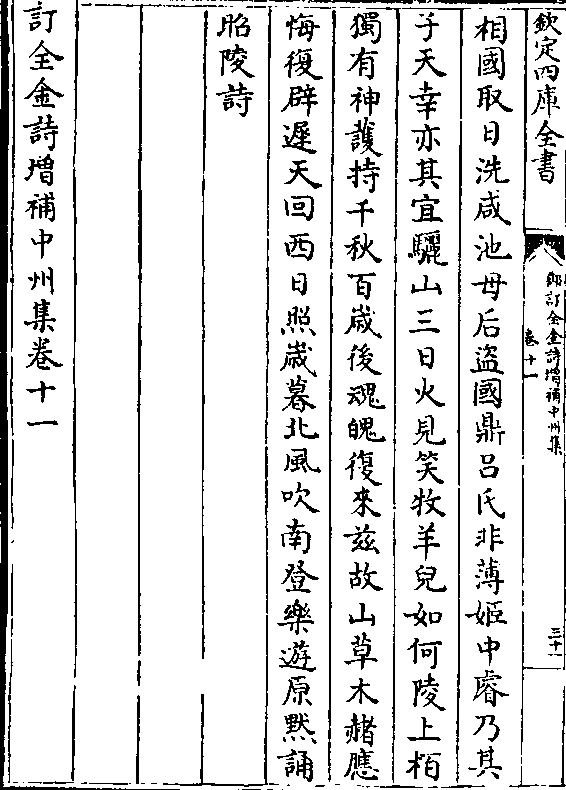 欽定四庫全書
御訂全金詩增補中州集
卷十一
三十一
相國取日洗咸池母后盜國鼎吕氏非薄姬中睿乃其
子天幸亦其宜驪山三日火見笑牧羊兒如何陵上栢
獨有神護持千秋百歲後魂魄復來兹故山草木赭應
悔復辟遲天回西日照歲暮北風吹南登樂遊原黙誦
昭陵詩
訂全金詩增補中州集卷十一